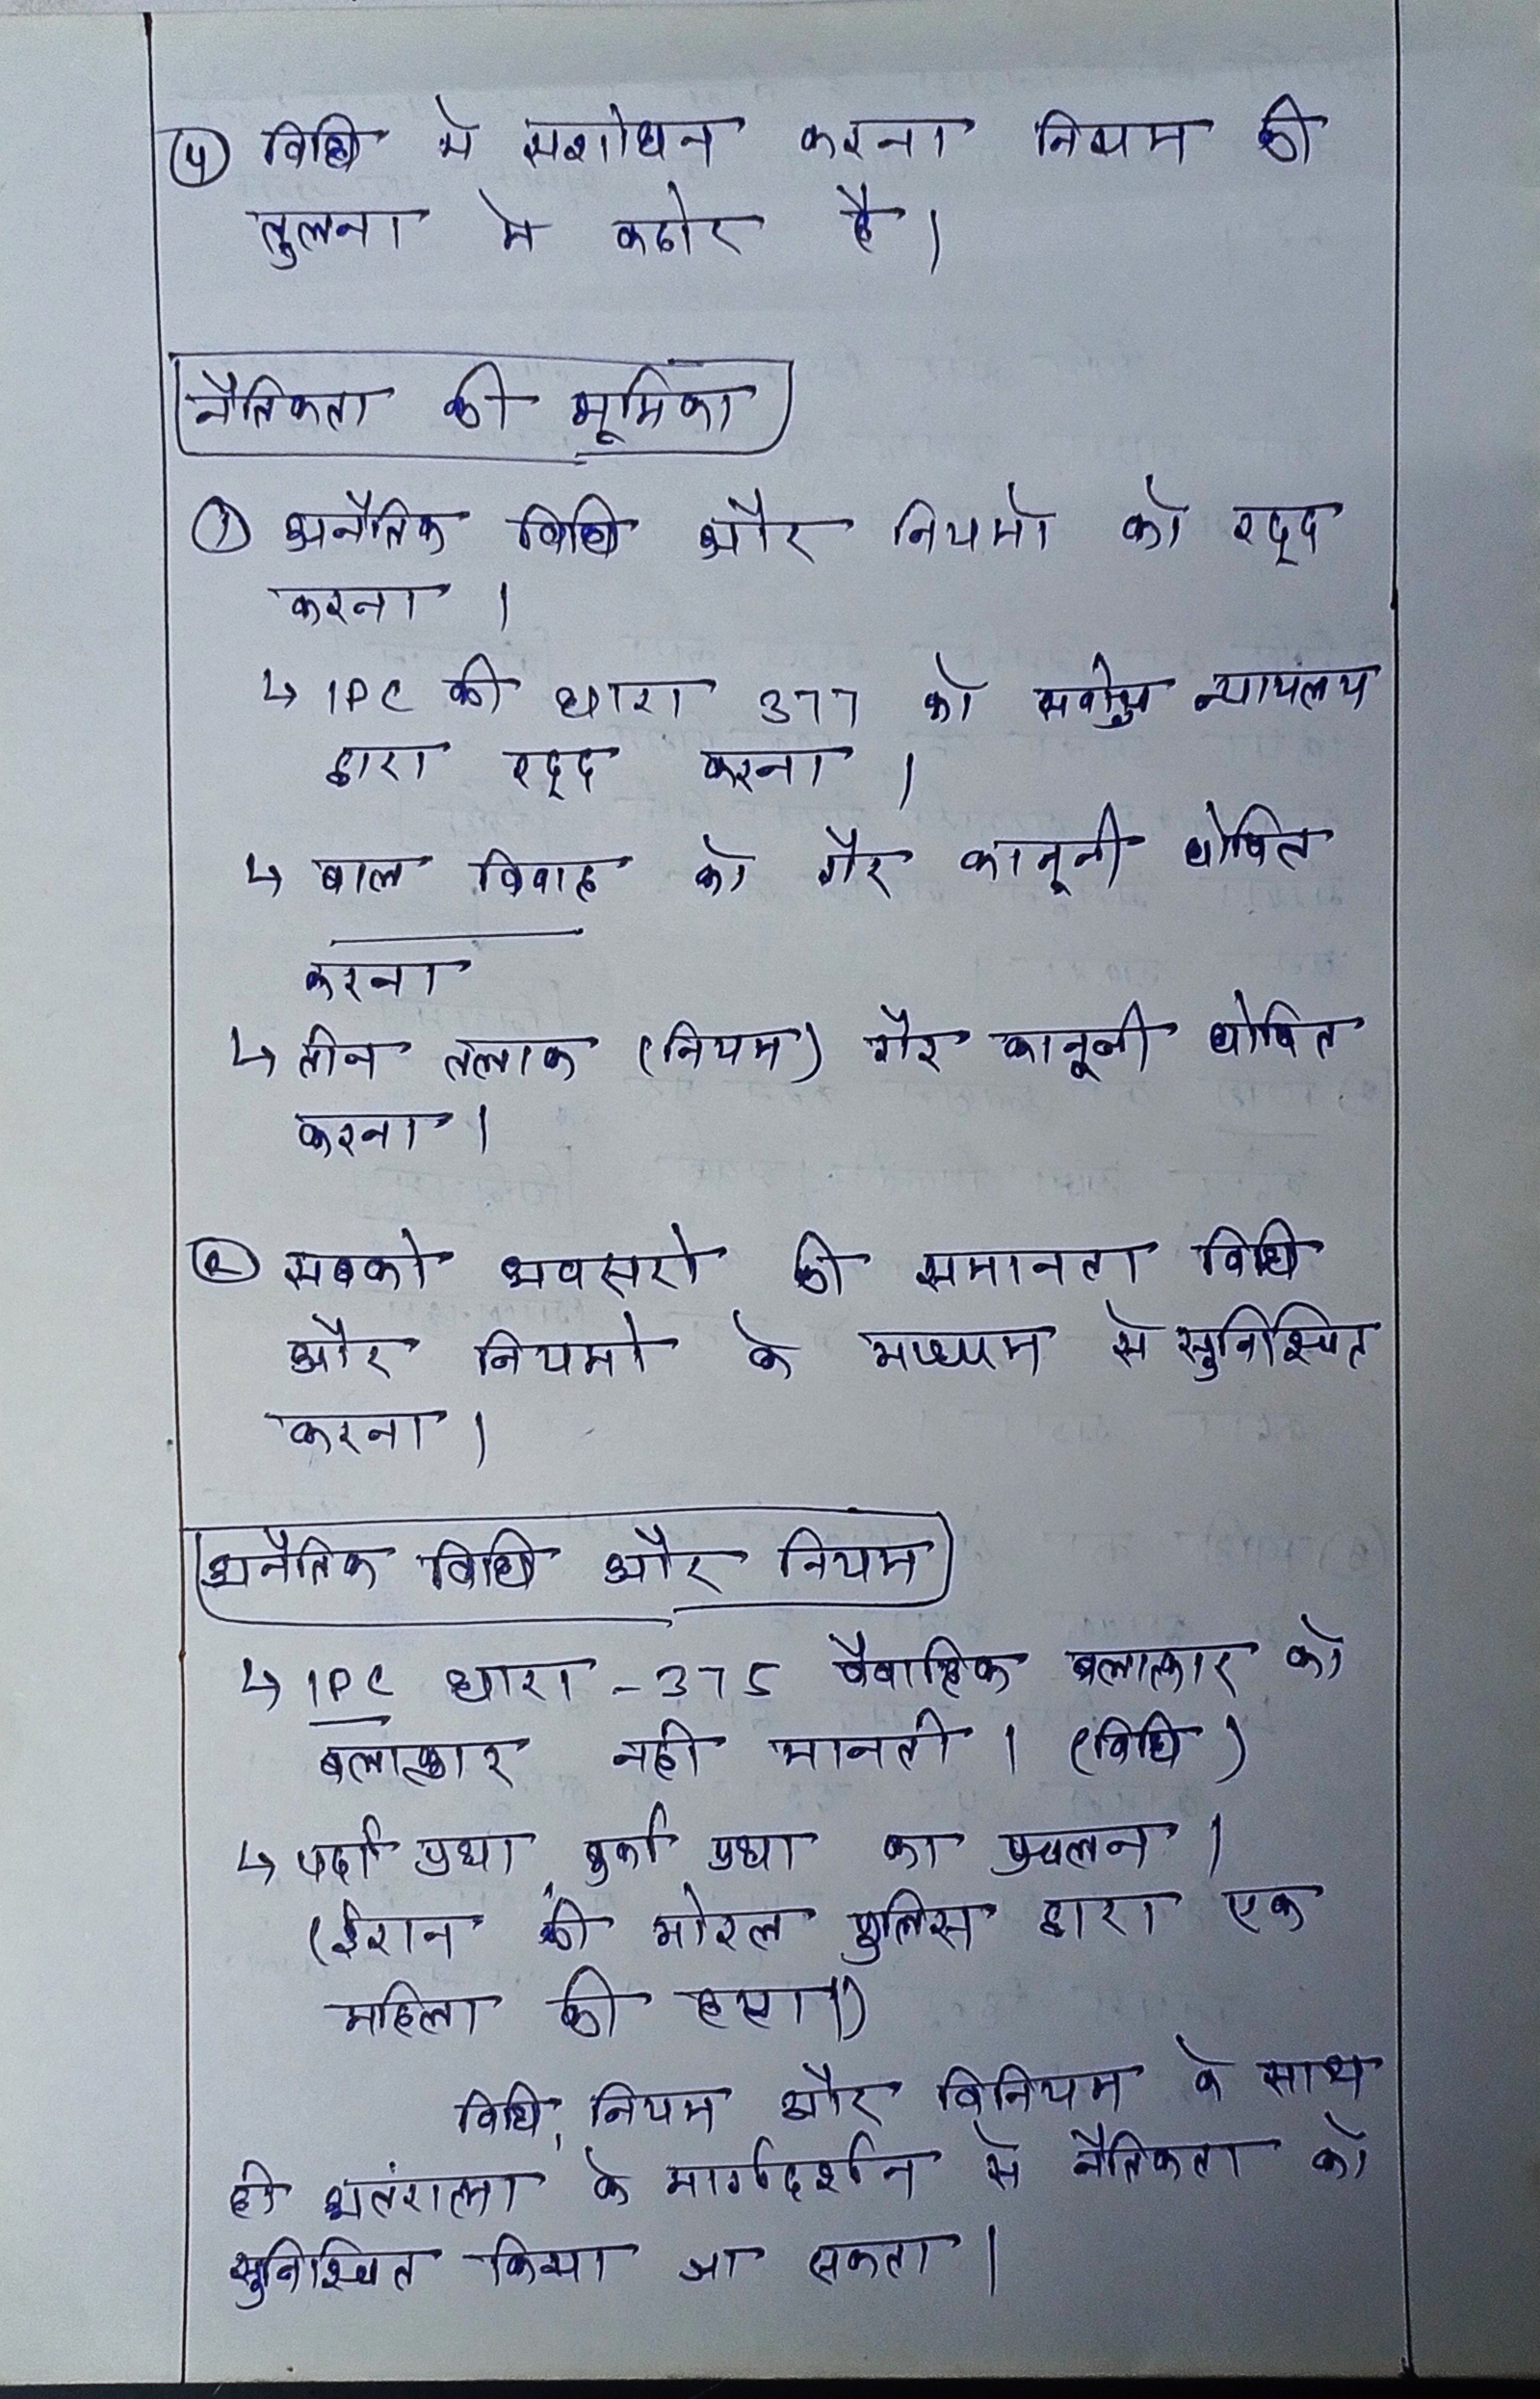 ④ विधि मे सशोधन करना नियम की
तुलना मे कठोर है।
नैतिकता की भूमिका
① अनैतिक विधि और नियमो को रद्द
करना ।
↳ IPC की धारा 377 को सर्वोच्च न्यायलय
द्वारा रद्द करना ।
↳ बाल विवाह को गैर कानूनी घोषित
करना
↳ तीन तलाक (नियम) गैर कानूनी घोषित
करना ।
② सबको अवसरो की समानता विधि
और नियमो के माध्यम से सुनिश्चित
करना ।
अनैतिक विधि और नियम
↳ IPC धारा - 375 वैवाहिक बलात्कार को
बलात्कार नही मानती । (विधि)
↳ पर्दा प्रथा, बुर्का प्रथा का प्रचलन ।
(ईरान की मोरल पुलिस द्वारा एक
महिला की हत्या।)
विधि, नियम और विनियम के साथ
ही अतंरात्मा के मार्गदर्शन से नैतिकता को
सुनिश्चित किया जा सकता ।